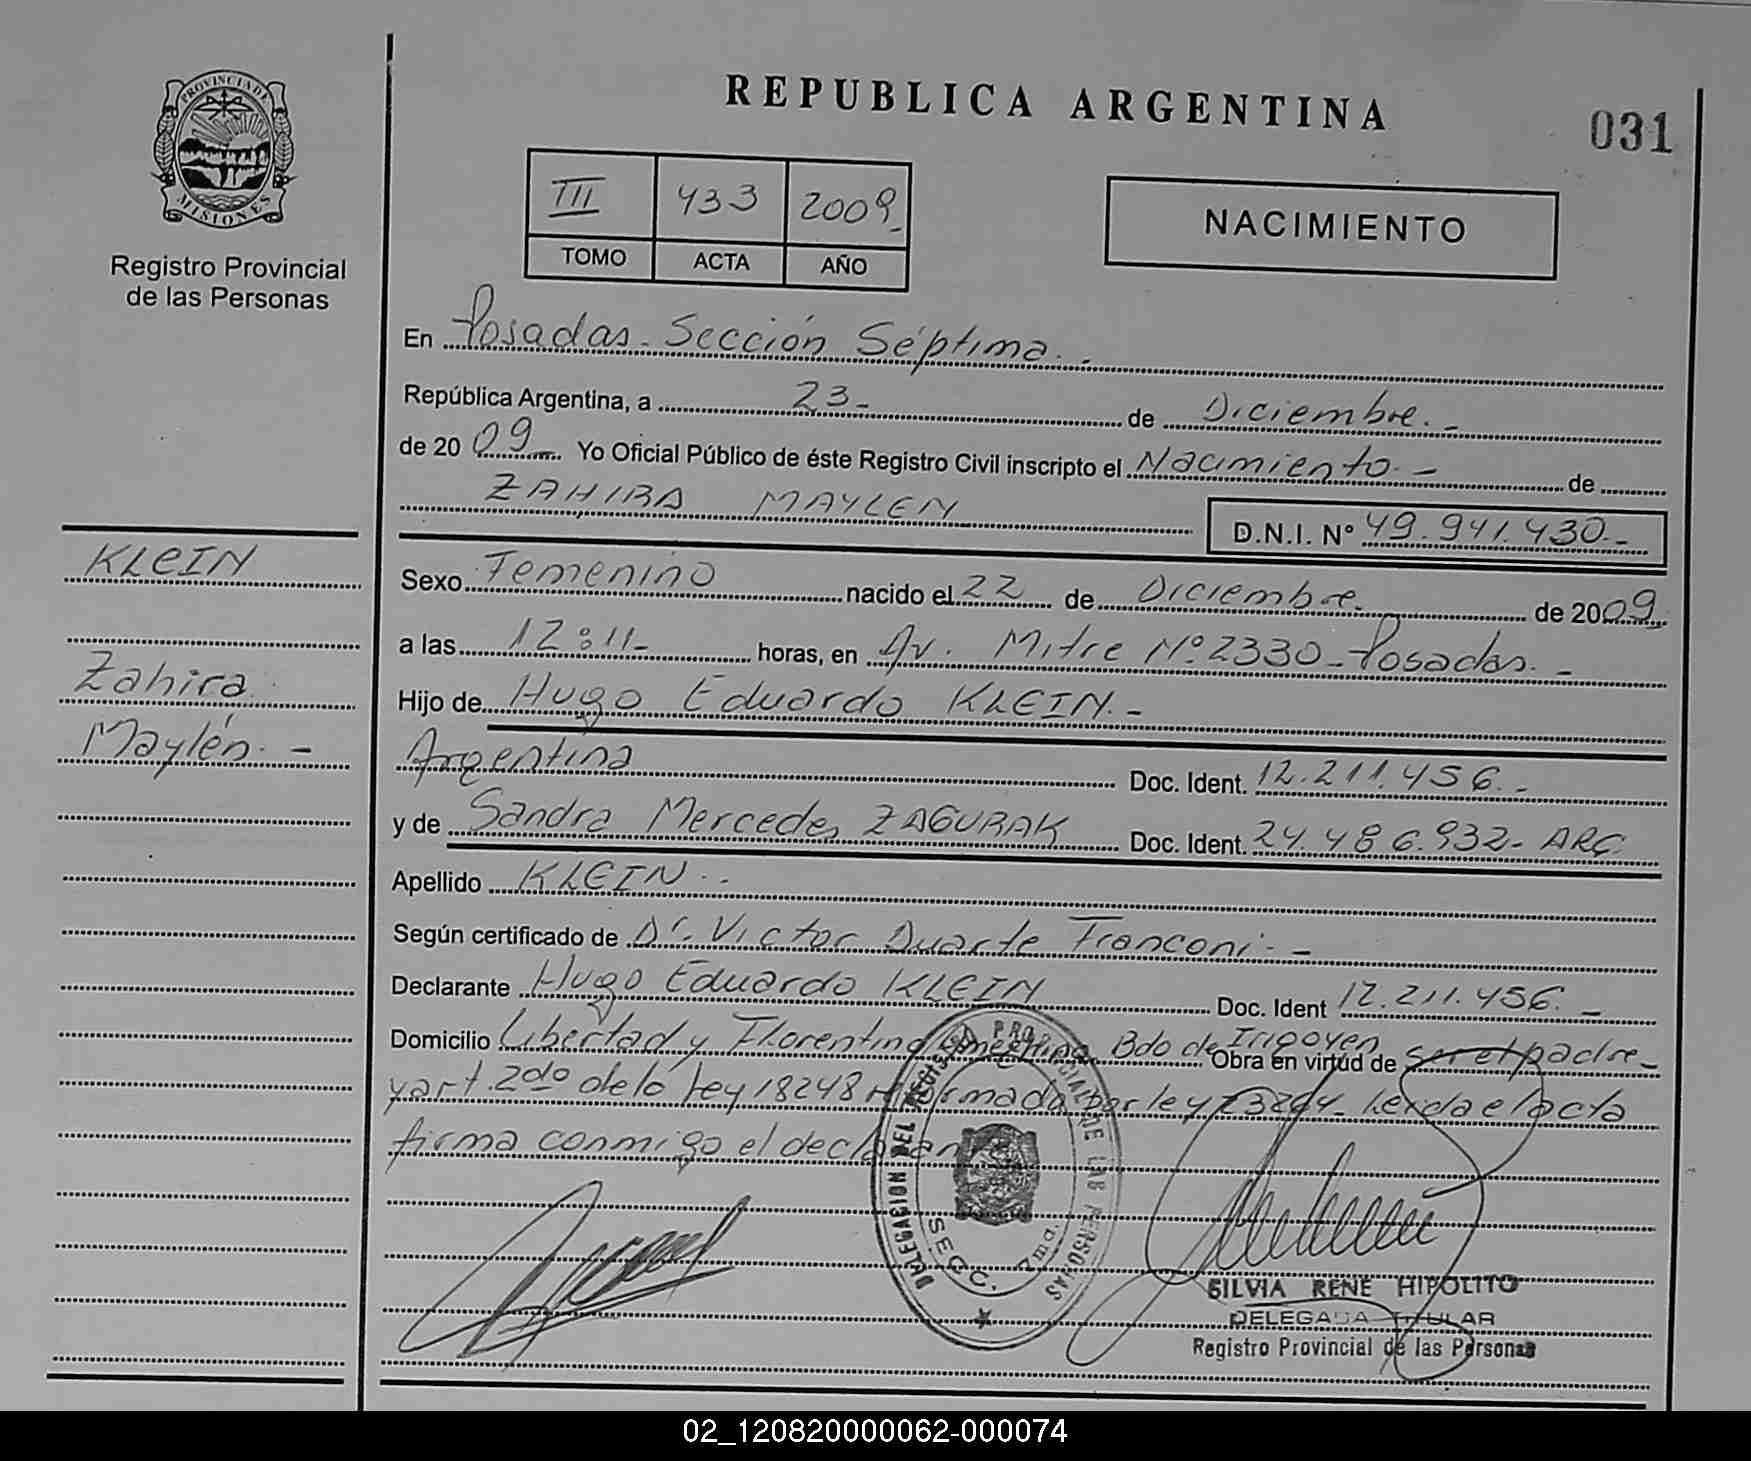 REPUBLICA ARGENTINA
031
PROVINCIA DE
MISIONES
Registro Provincial
de las Personas
III 433 2009
TOMO ACTA AÑO
NACIMIENTO
En Posadas. Sección Séptima.-
República Argentina, a 23- de Diciembre.-
de 20 09 Yo Oficial Público de éste Registro Civil inscripto el Nacimiento.- de
ZAHIRA MAYLEN D.N.I. Nº 49.941.430.-
KLEIN
Zahira
Maylén.-
Sexo Femenino nacido el 22 de Diciembre. de 2009
a las 12:11- horas, en Av. Mitre Nº 2330-Posadas.-
Hijo de Hugo Eduardo KLEIN.-
Argentina Doc. Ident. 12.211.456.-
y de Sandra Mercedes ZAGURAK Doc. Ident. 24.486.932- ARG
Apellido KLEIN..
Según certificado de Dr. Victor Duarte Franconi.-
Declarante Hugo Eduardo KLEIN Doc. Ident 12.211.456.-
Domicilio Libertad y Florentino Bdo de Irigoyen Obra en virtud de ser el padre-
y art. 2do de la Ley 18248 reformada por ley 23264- Leida el acta
firma conmigo el declarante
DELEGACION DEL REGISTRO PROVINCIAL DE LAS PERSONAS
SECC.
SILVIA RENE HIPOLITO
DELEGADA TITULAR
Registro Provincial de las Personas
02_120820000062-000074